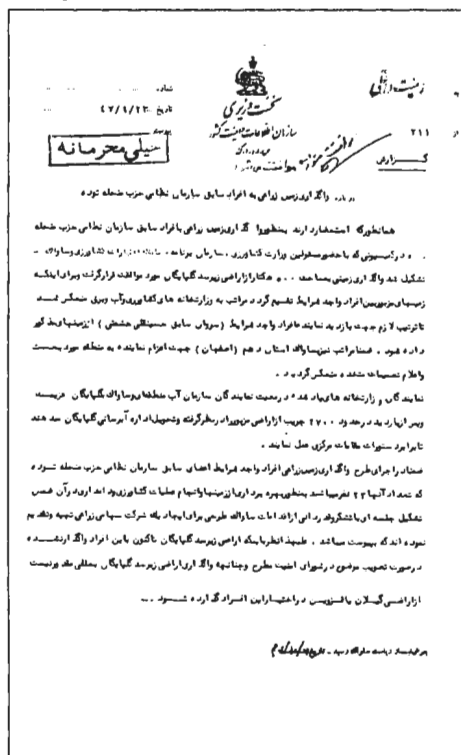 شماره
نخست وزیری
تاریخ ۴۷/۱/۲۳
سازمان اطلاعات و امنیت کشور
از ۲۱۱
پیوست
خیلی محرمانه
گزارش
درباره واگذاری زمین زراعی به افراد سابق سازمان نظامی حزب منحله توده
همانطور که استحضار دارند بمنظور واگذاری زمین زراعی بافراد سابق سازمان نظامی حزب منحله
توده در کمیسیونی که با حضور مسئولین وزارت کشاورزی، سازمان برنامه، کشاورزی و ساواک
تشکیل شد واگذاری زمینی بمساحت هکتار از اراضی زیر سد گلپایگان مورد موافقت قرار گرفت و برای اینکه
زمینهای مزبور بین افراد واجد شرایط تقسیم گردد مراتب به وزارتخانه های کشاورزی و آب و برق منعکس شد
تا ترتیب لازم جهت بازدید نماینده افراد واجد شرایط (سروان سابق حسینقلی) از زمینهای مذکور
داده شود. ضمنا مراتب نیز بساواک استان دهم (اصفهان) جهت اعزام نماینده به منطقه مورد بحث
و اعلام تصمیمات متخذه منعکس گردید.
نمایندگان وزارتخانه های یاد شده در معیت نمایندگان سازمان آب منطقه ای و ساواک گلپایگان
و پس از بازدید در حدود ۲۷۰۰ جریب از اراضی مزبور را در نظر گرفته و تحویل اداره آبرسانی گلپایگان میدهند
تا برابر دستورات مقامات مرکزی عمل نمایند.
ضمنا در اجرای طرح واگذاری زمین زراعی افراد واجد شرایط اعضای سابق سازمان نظامی حزب منحله توده
که تعداد آنها ۲۳ نفر میباشد بمنظور بهره برداری از زمینها و انجام عملیات کشاورزی و دامداری در آن ضمن
تشکیل جلسه ای با تشکر و قدردانی از اقدامات ساواک طرحی برای ایجاد یک شرکت سهامی زراعی تهیه و تقدیم
نموده اند که بپیوست میباشد. علیهذا نظر باینکه اراضی زیر سد گلپایگان تاکنون باین افراد واگذار نشده
در صورت تصویب موضوع در شورای امنیت مطرح و چنانچه واگذاری اراضی زیر سد گلپایگان بعللی مقدور نیست
از اراضی گیلان یا قزوین در اختیار این افراد گذارده شود